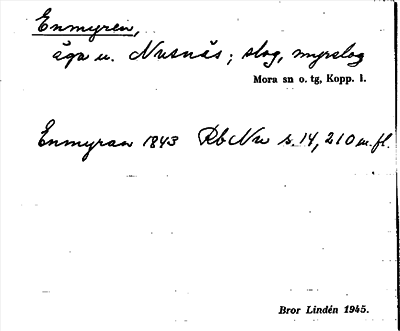 Enmyren,
äga u. Nusnäs; slog, myrslog
Mora sn o. tg, Kopp. l.
Enmyran 1843 RbNu s. 14, 210 m.fl.
Bror Lindén 1945.